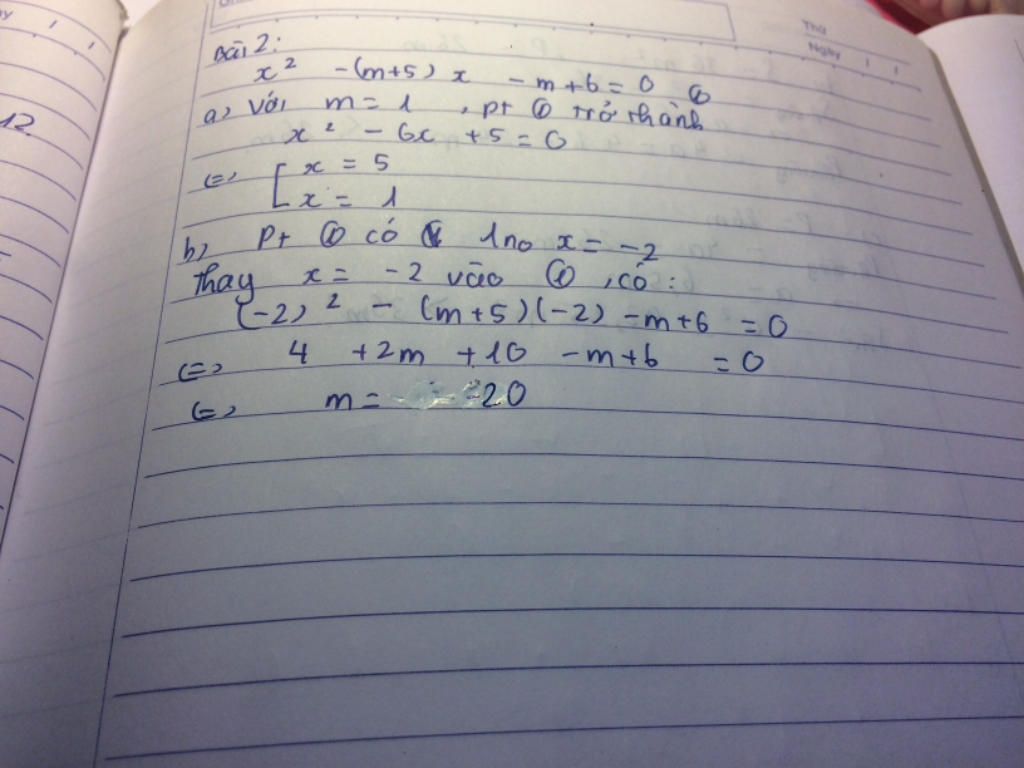 Thứ
Ngày
12
Bài 2:
x² -(m+5) x - m+6 = 0 ①
a, Với m = 1 , pt ① trở thành
x² - 6x + 5 = 0
<=> [ x = 5
x = 1
b, Pt ① có 1 no x = -2
Thay x = -2 vào ① , có :
(-2)² - (m+5)(-2) - m+6 = 0
<=> 4 +2m +10 - m+6 = 0
<=> m = -20